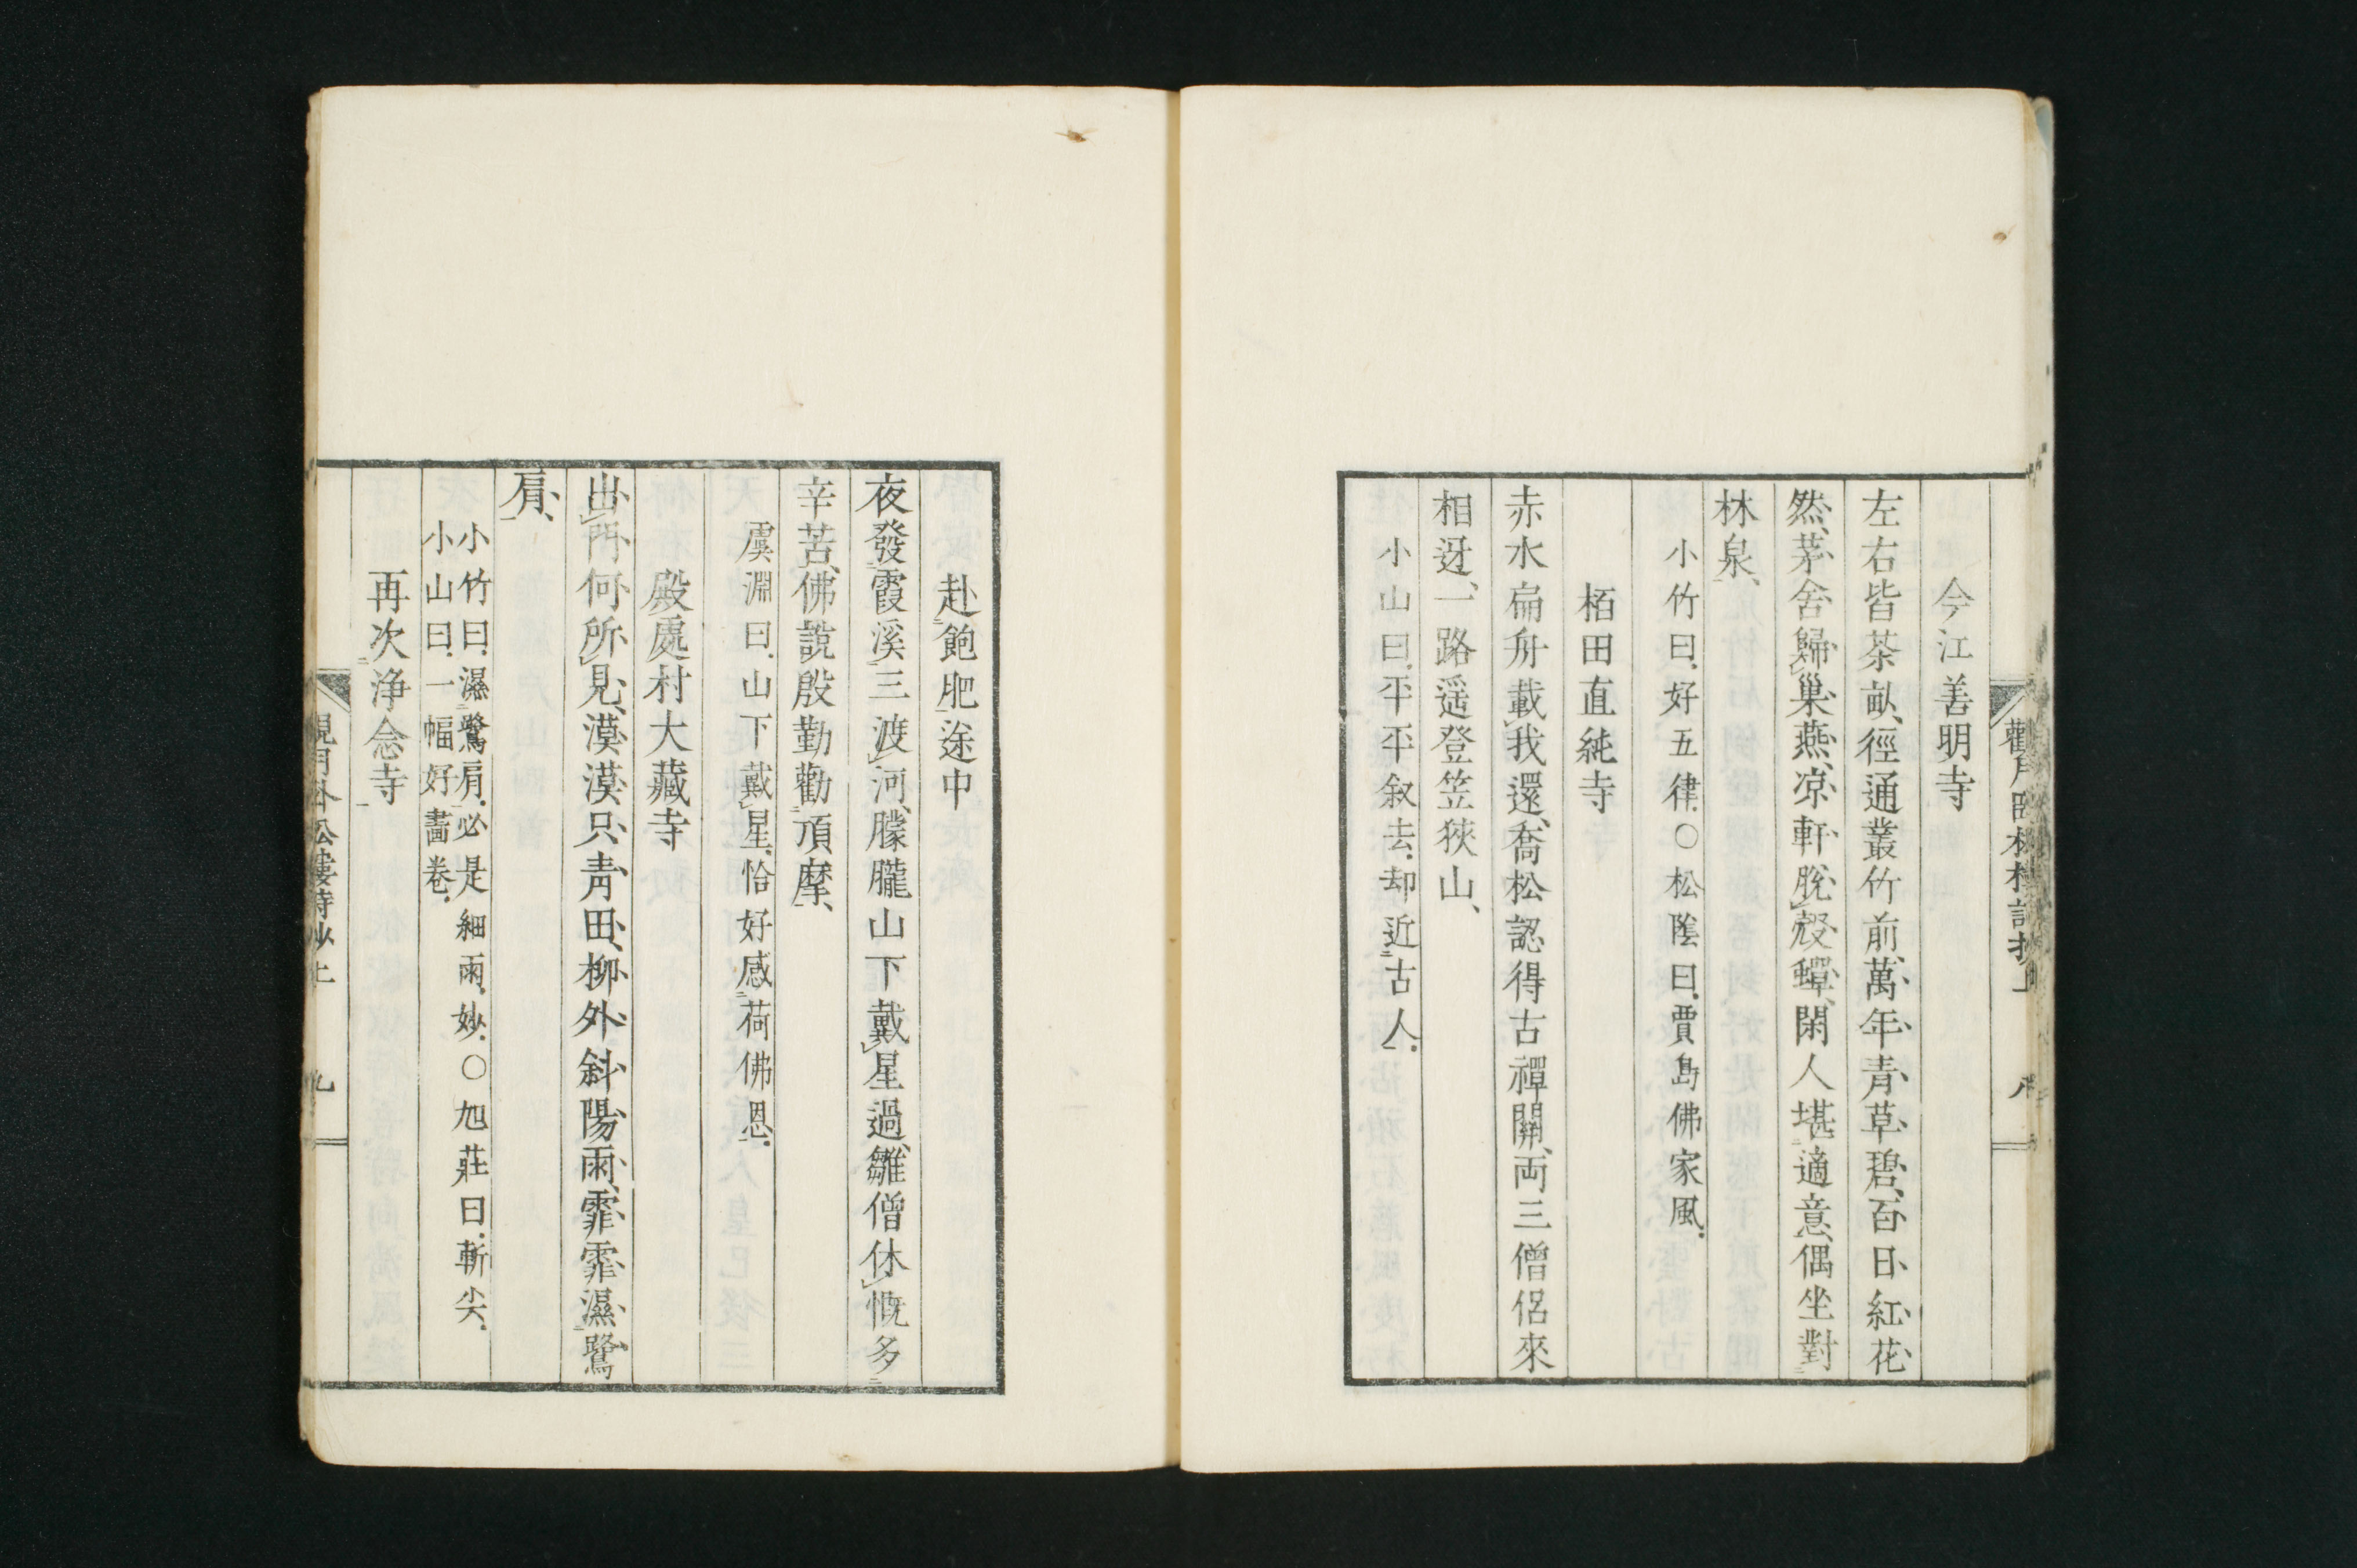 今江善明寺
左右皆茶畝、徑通叢竹前、萬年青草碧、百日紅花
然、茅舍歸巢燕、凉軒脫殼蟬、閑人堪適意、偶坐對
林泉、
小竹曰、好五律、○松陰曰、賈島佛家風、
栢田直純寺
赤水扁舟載我還、喬松認得古禪關、両三僧侶來
相迓、一路遥登笠狹山、
小山曰、平平叙去、却近古人、
赴飽肥途中
夜發霞溪三渡河、朦朧山下戴星過、雛僧休慨多
辛苦、佛說殷勤勸頂摩、
虞淵曰、山下戴星、恰好感荷佛恩、
殿處村大藏寺
出門何所見、漠漠只青田、柳外斜陽雨、霏霏濕鷺
肩、
小竹曰、濕鷺肩、必是細雨、妙、○旭莊曰、斬尖、
小山曰、一幅好畵卷、
再次浄念寺
松樓詩抄上 九